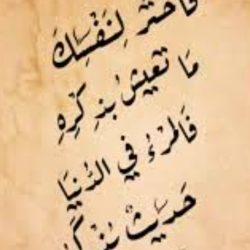 فاختر لنفسك
مَا تَعيشُ بِذِكرِهِ
فَالمَرءُ في الدُّنيَا
حَديثٌ يُذكَرُ